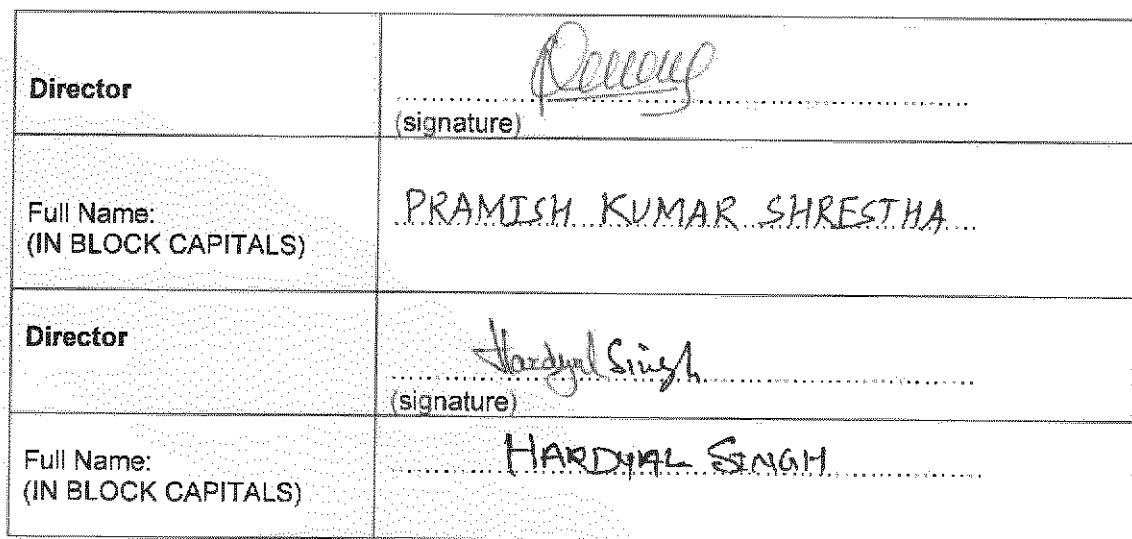 Director
(signature)
Full Name:
(IN BLOCK CAPITALS)
PRAMISH KUMAR SHRESTHA
Director
Hardyal Singh
(signature)
Full Name:
(IN BLOCK CAPITALS)
HARDYAL SINGH